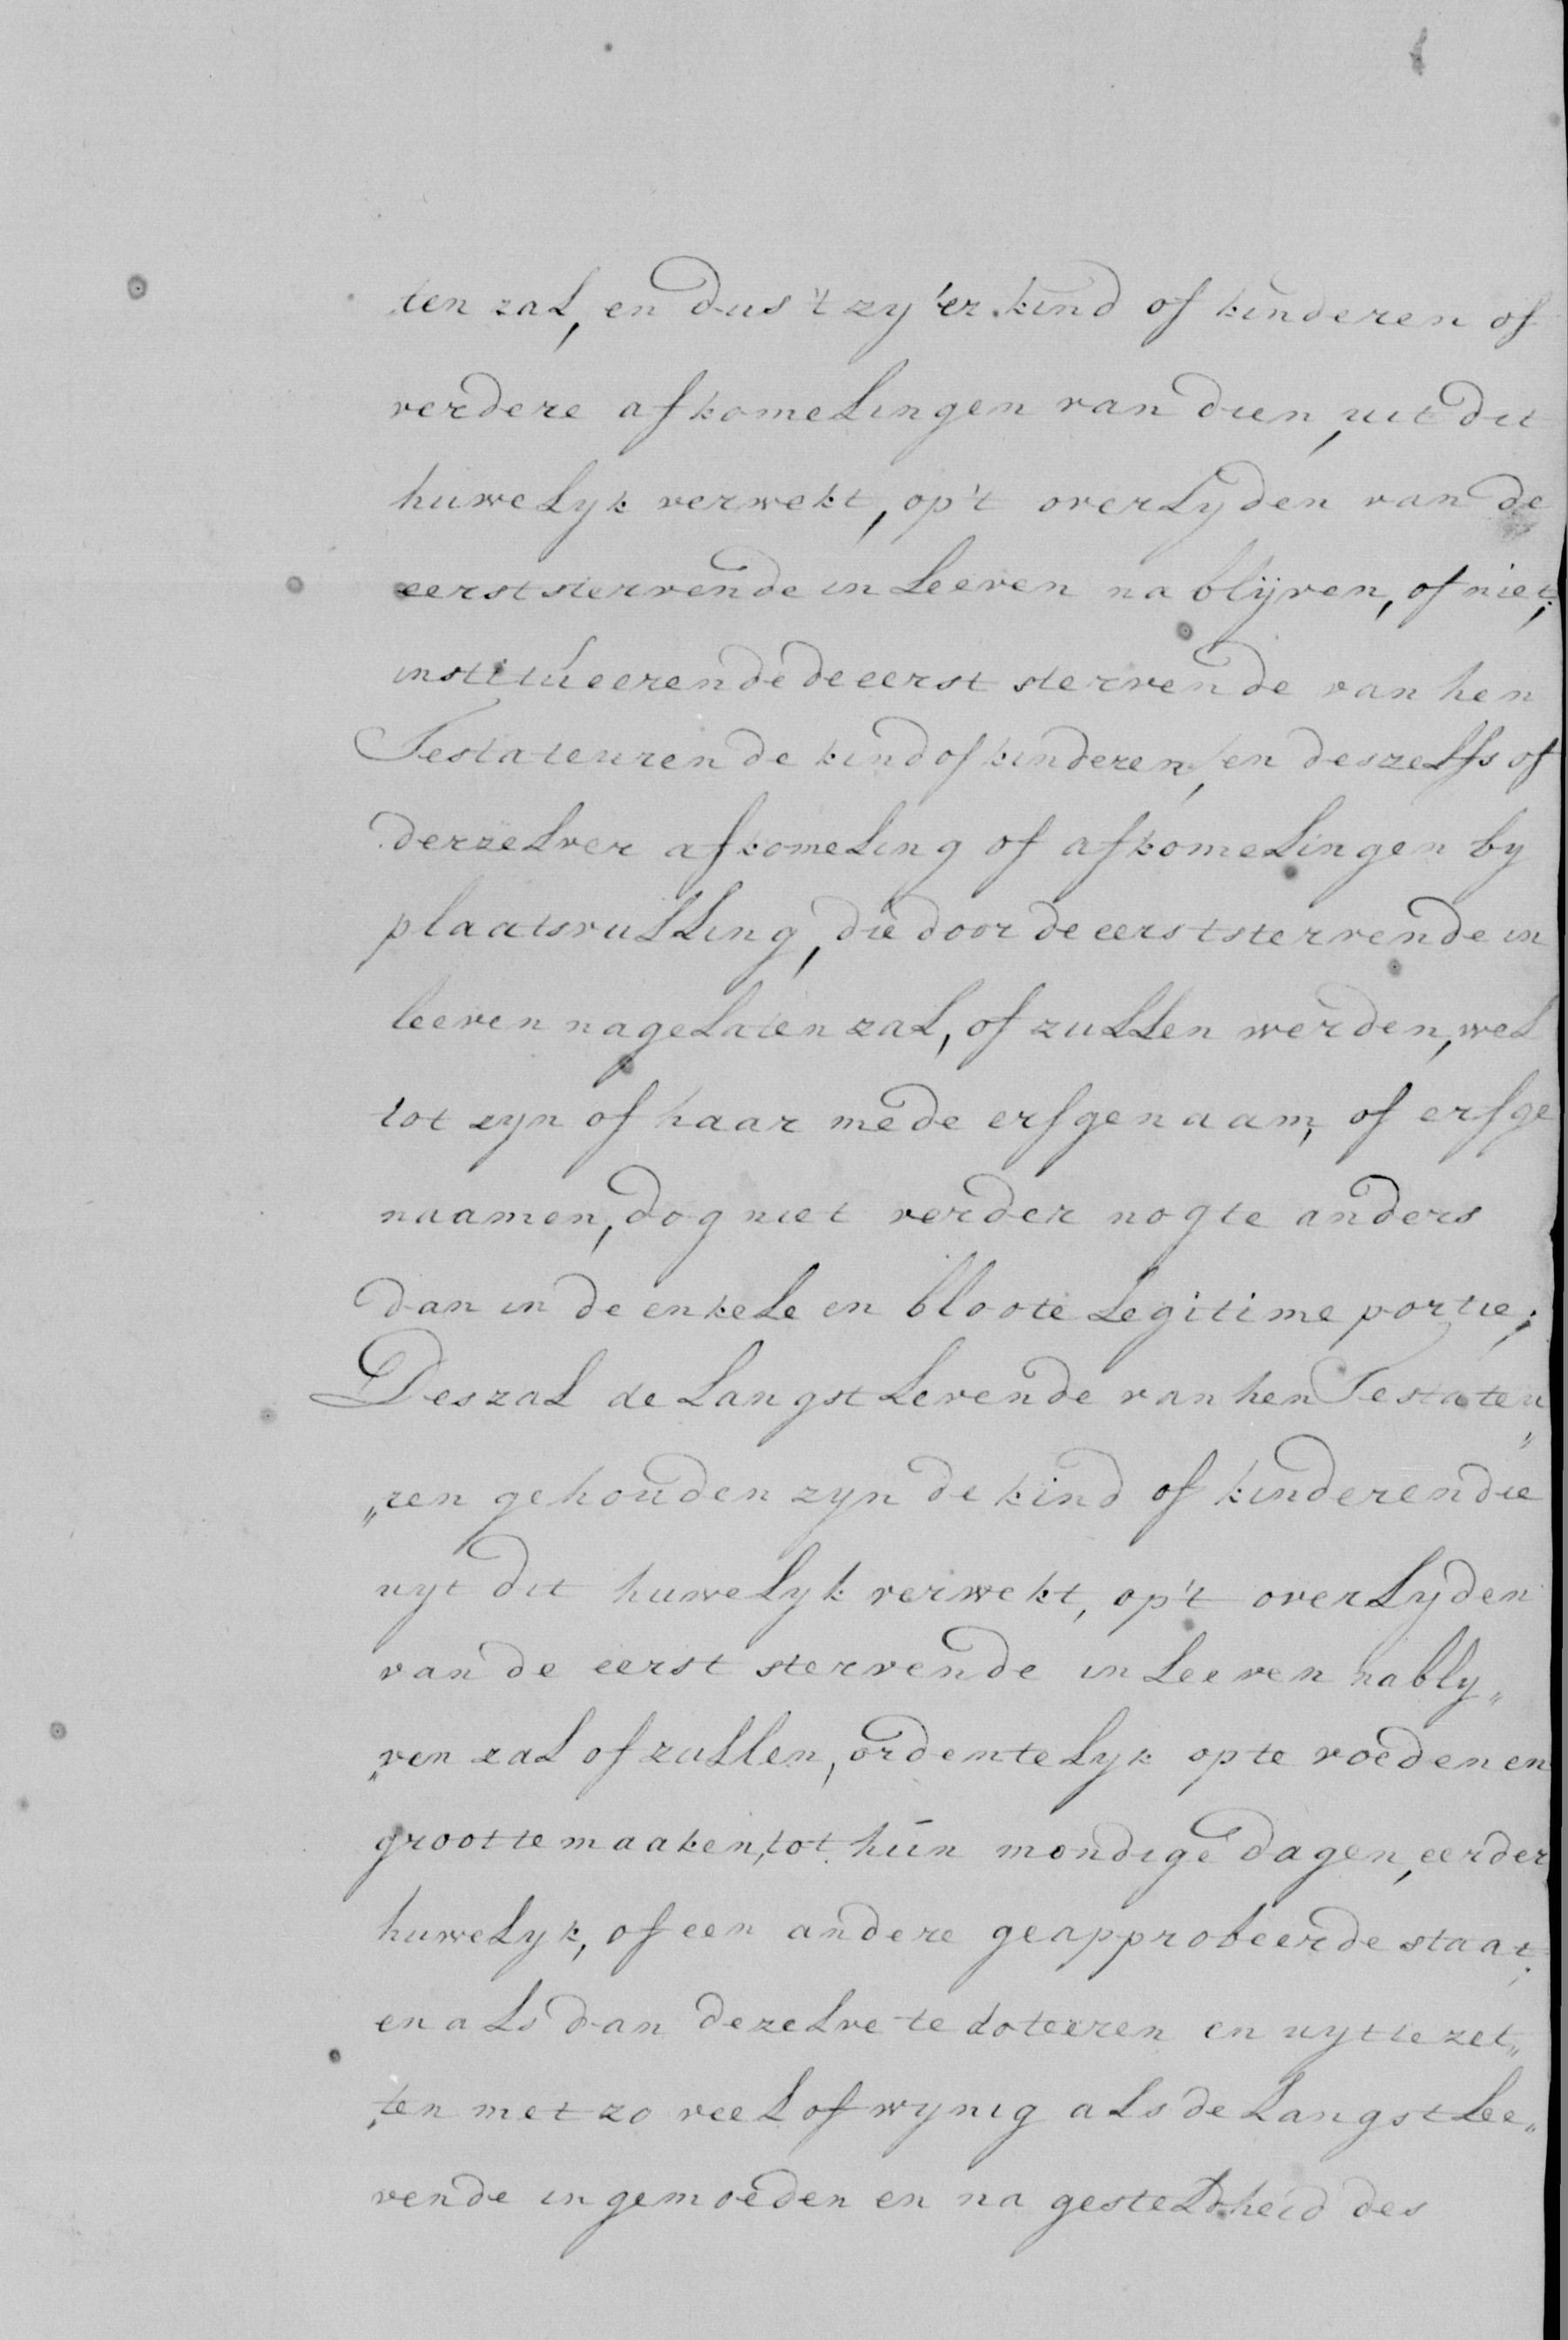 ten zal, en dus 't zy 'er kind of kinderen of
verdere afkomelingen van dien, uit dit
huwelyk verwekt, op 't overlyden van de
eerststervende in leeven na blijven, of niet;
institúeerende de eerst stervende van hen
Testateuren de kind of kinderen, en deszelfs of
derzelver afkomeling of afkomelingen by
plaatsvulling, die door de eerststervende in
leeven nagelaten zal, of zullen werden, wel
tot zyn of haar mede erfgenaam, of erfge
naamen, dog niet verder nogte anders
dan in de enkele en bloote legitime portie;
Des zal de Langst Levende van hen Testateu„
„ren gehouden zyn de kind of kinderen die
uyt dit huwelyk verwekt, op 't overlyden
van de eerst stervende in leeven nably„
„ven zal of zullen, ordentelyk op te voeden en
groot te maaken, tot hún mondige dagen, eerder
huwelyk, of een andere geapprobeerde staat;
en als dan dezelve te doteeren en uyt te zet„
„ten met zo veel of wynig als de Langst Lee„
vende in gemoeden en na gesteldheid des